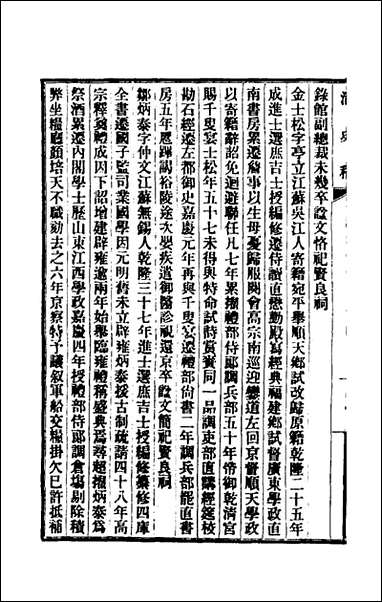 錄館副總裁未幾卒諡文恪祀賢良祠
金士松字亭立江蘇吳江人寄籍宛平舉順天鄉試改歸原籍乾隆二十五年
成進士選庶吉士授編修遷侍讀直懋勤殿寫經典福建鄉試督廣東學政直
南書房累遷詹事以生母憂歸服闋會高宗南巡迎鑾道左回京督順天學政
以寄籍辭詔免迴避聯任凡七年累擢禮部侍郎調兵部五十年帝御乾清宮
賜千叟宴士松年五十七未得與特命試詩賞賚同一品調吏部直講經筵校
勘石經遷左都御史嘉慶元年再與千叟宴遷禮部尚書二年調兵部罷直書
房五年扈蹕謁裕陵途次嬰疾遣御醫診視還京卒諡文簡祀賢良祠
鄒炳泰字仲文江蘇無錫人乾隆三十七年進士選庶吉士授編修纂修四庫
全書遷國子監司業國學因元明舊未立辟雍炳泰援古制疏請四十八年高
宗釋奠禮成因下詔增建辟雍逾兩年始舉臨雍禮稱盛典焉尋超擢炳泰為
祭酒累遷內閣學士歷山東江西學政嘉慶四年授禮部侍郎調倉場剔除積
弊坐糧廳顏培天不職劾去之六年京察特予議敘軍船交糧掛欠已許抵補